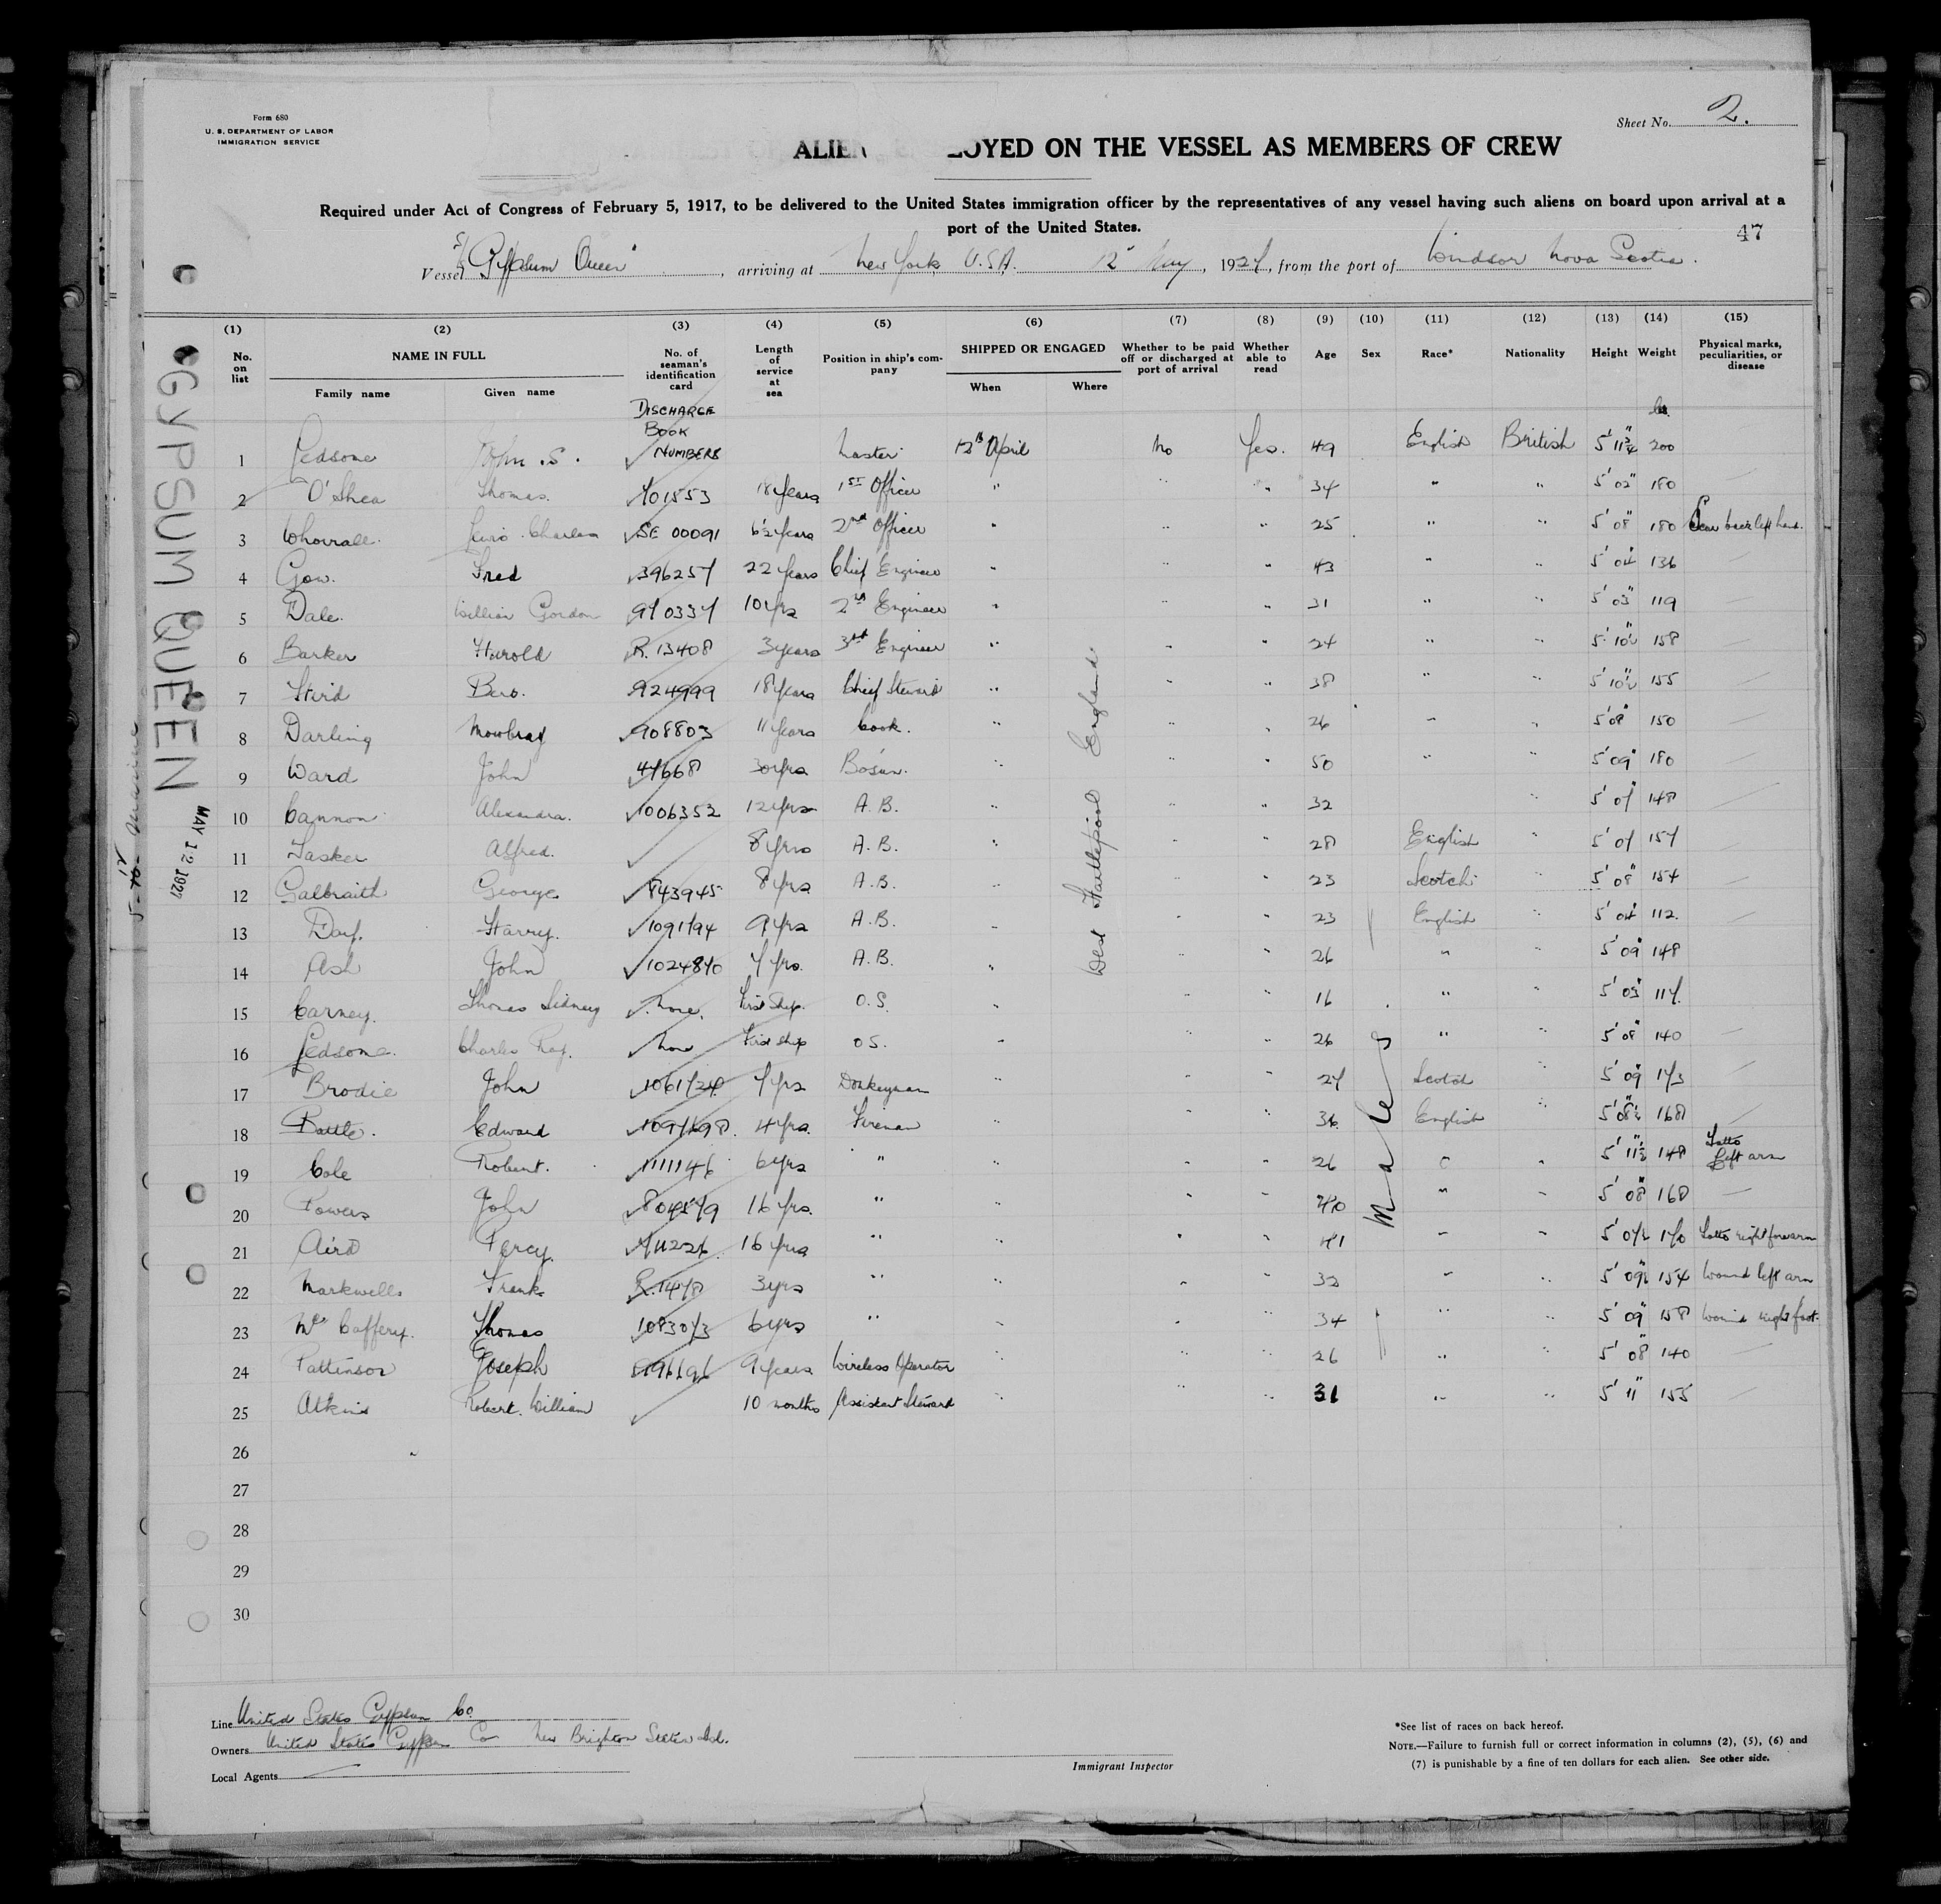 Form 680
U. S. DEPARTMENT OF LABOR
IMMIGRATION SERVICE
Sheet No. 2.
ALIEN LOYED ON THE VESSEL AS MEMBERS OF CREW
Required under Act of Congress of February 5, 1917, to be delivered to the United States immigration officer by the representatives of any vessel having such aliens on board upon arrival at a
port of the United States.
47
Vessel S/S "Gypsum Queen", arriving at New York U.S.A. 12 May, 1927, from the port of Windsor Nova Scotia.
(1) (2) (3) (4) (5) (6) (7) (8) (9) (10) (11) (12) (13) (14) (15)
No. on list
NAME IN FULL
Family name Given name
No. of seaman's identification card
Length of service at sea
Position in ship's company
SHIPPED OR ENGAGED
When Where
Whether to be paid off or discharged at port of arrival
Whether able to read
Age Sex Race* Nationality Height Weight
Physical marks, peculiarities, or disease
DISCHARGE BOOK NUMBERS
lbs.
1 John S. Master 13th April No Yes. 49 English British 5' 11¾" 200
2 O'Shea Thomas. 701553 18 years 1st Officer " " " 34 " " 5' 02" 180
3 Charles SE 00091 6½ years 2nd Officer " " " 25 " " 5' 08" 180 Scar back left hand.
4 Gow. Fred 396257 22 years Chief Engineer " " " 43 " " 5' 04" 136
5 Dale. William Gordon 970337 10 yrs 2nd Engineer " " " 31 " " 5' 03" 119
6 Barker Harold R. 13408 3 years 3rd Engineer " " " 24 " " 5' 10½" 158
7 924999 18 years Chief Steward " " " 38 " " 5' 10½" 155
8 Darling Mowbray 908803 11 years Cook. " " " 26 " " 5' 08" 150
9 Ward John 47668 30 yrs Bosun. " " " 50 " " 5' 09" 180
10 Cannon Alexandra. 1006352 12 yrs A.B. " " " 32 " 5' 07 148
11 Tasker Alfred. 8 yrs A.B. " " " 28 English " 5' 07 157
12 Galbraith George 843945 8 yrs A.B. " " 23 Scotch " 5' 08" 154
13 Day. Harry. 1091794 9 yrs A.B. " " " 23 English " 5' 04" 112.
14 Ash John 1024870 7 yrs. A.B. " " " 26 " " 5' 09" 148
15 Carney. Thomas Sidney none. First Ship. O.S. " " " 16 " " 5' 03" 117.
16 Charles Ray. none First ship O.S. " " " 26 " " 5' 08" 140
17 Brodie John 1061724 7 yrs Donkeyman " " " 27 Scotch " 5' 09 173
18 Battle. Edward 1097698. 4 yrs. Fireman " " " 36 English " 5' 08½" 168
19 Cole Robert. 1111146 6 yrs " " " " 26 " " 5' 11½" 148 Tatto Left arm
20 Powers John 804579 16 yrs. " " " " 40 " " 5' 08" 168
21 Aird Percy. 711226 16 yrs " " " " 41 " " 5' 07½ 170 Tatto right forearm
22 Markwells Frank R. 1478 3 yrs " " " " 32 " " 5' 09½" 154 Wound left arm
23 McCaffery. Thomas 1083073 6 yrs " " " " 34 " " 5' 09" 158 Wound right foot.
24 Pattinson Joseph 9 years Wireless Operator " " " 26 " " 5' 08" 140
25 Atkins Robert William 10 months Assistant Steward " " " 31 " " 5' 11" 155
26
27
28
29
30
West Hartlepool England
Males
GYPSUM QUEEN
MAY 12 1927
Line United States Gypsum Co.
Owners United States Gypsum Co New Brighton Staten Isl.
Local Agents
Immigrant Inspector
*See list of races on back hereof.
NOTE.—Failure to furnish full or correct information in columns (2), (5), (6) and
(7) is punishable by a fine of ten dollars for each alien. See other side.